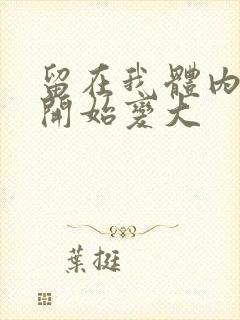 留在我體內
開始變大
葉挺